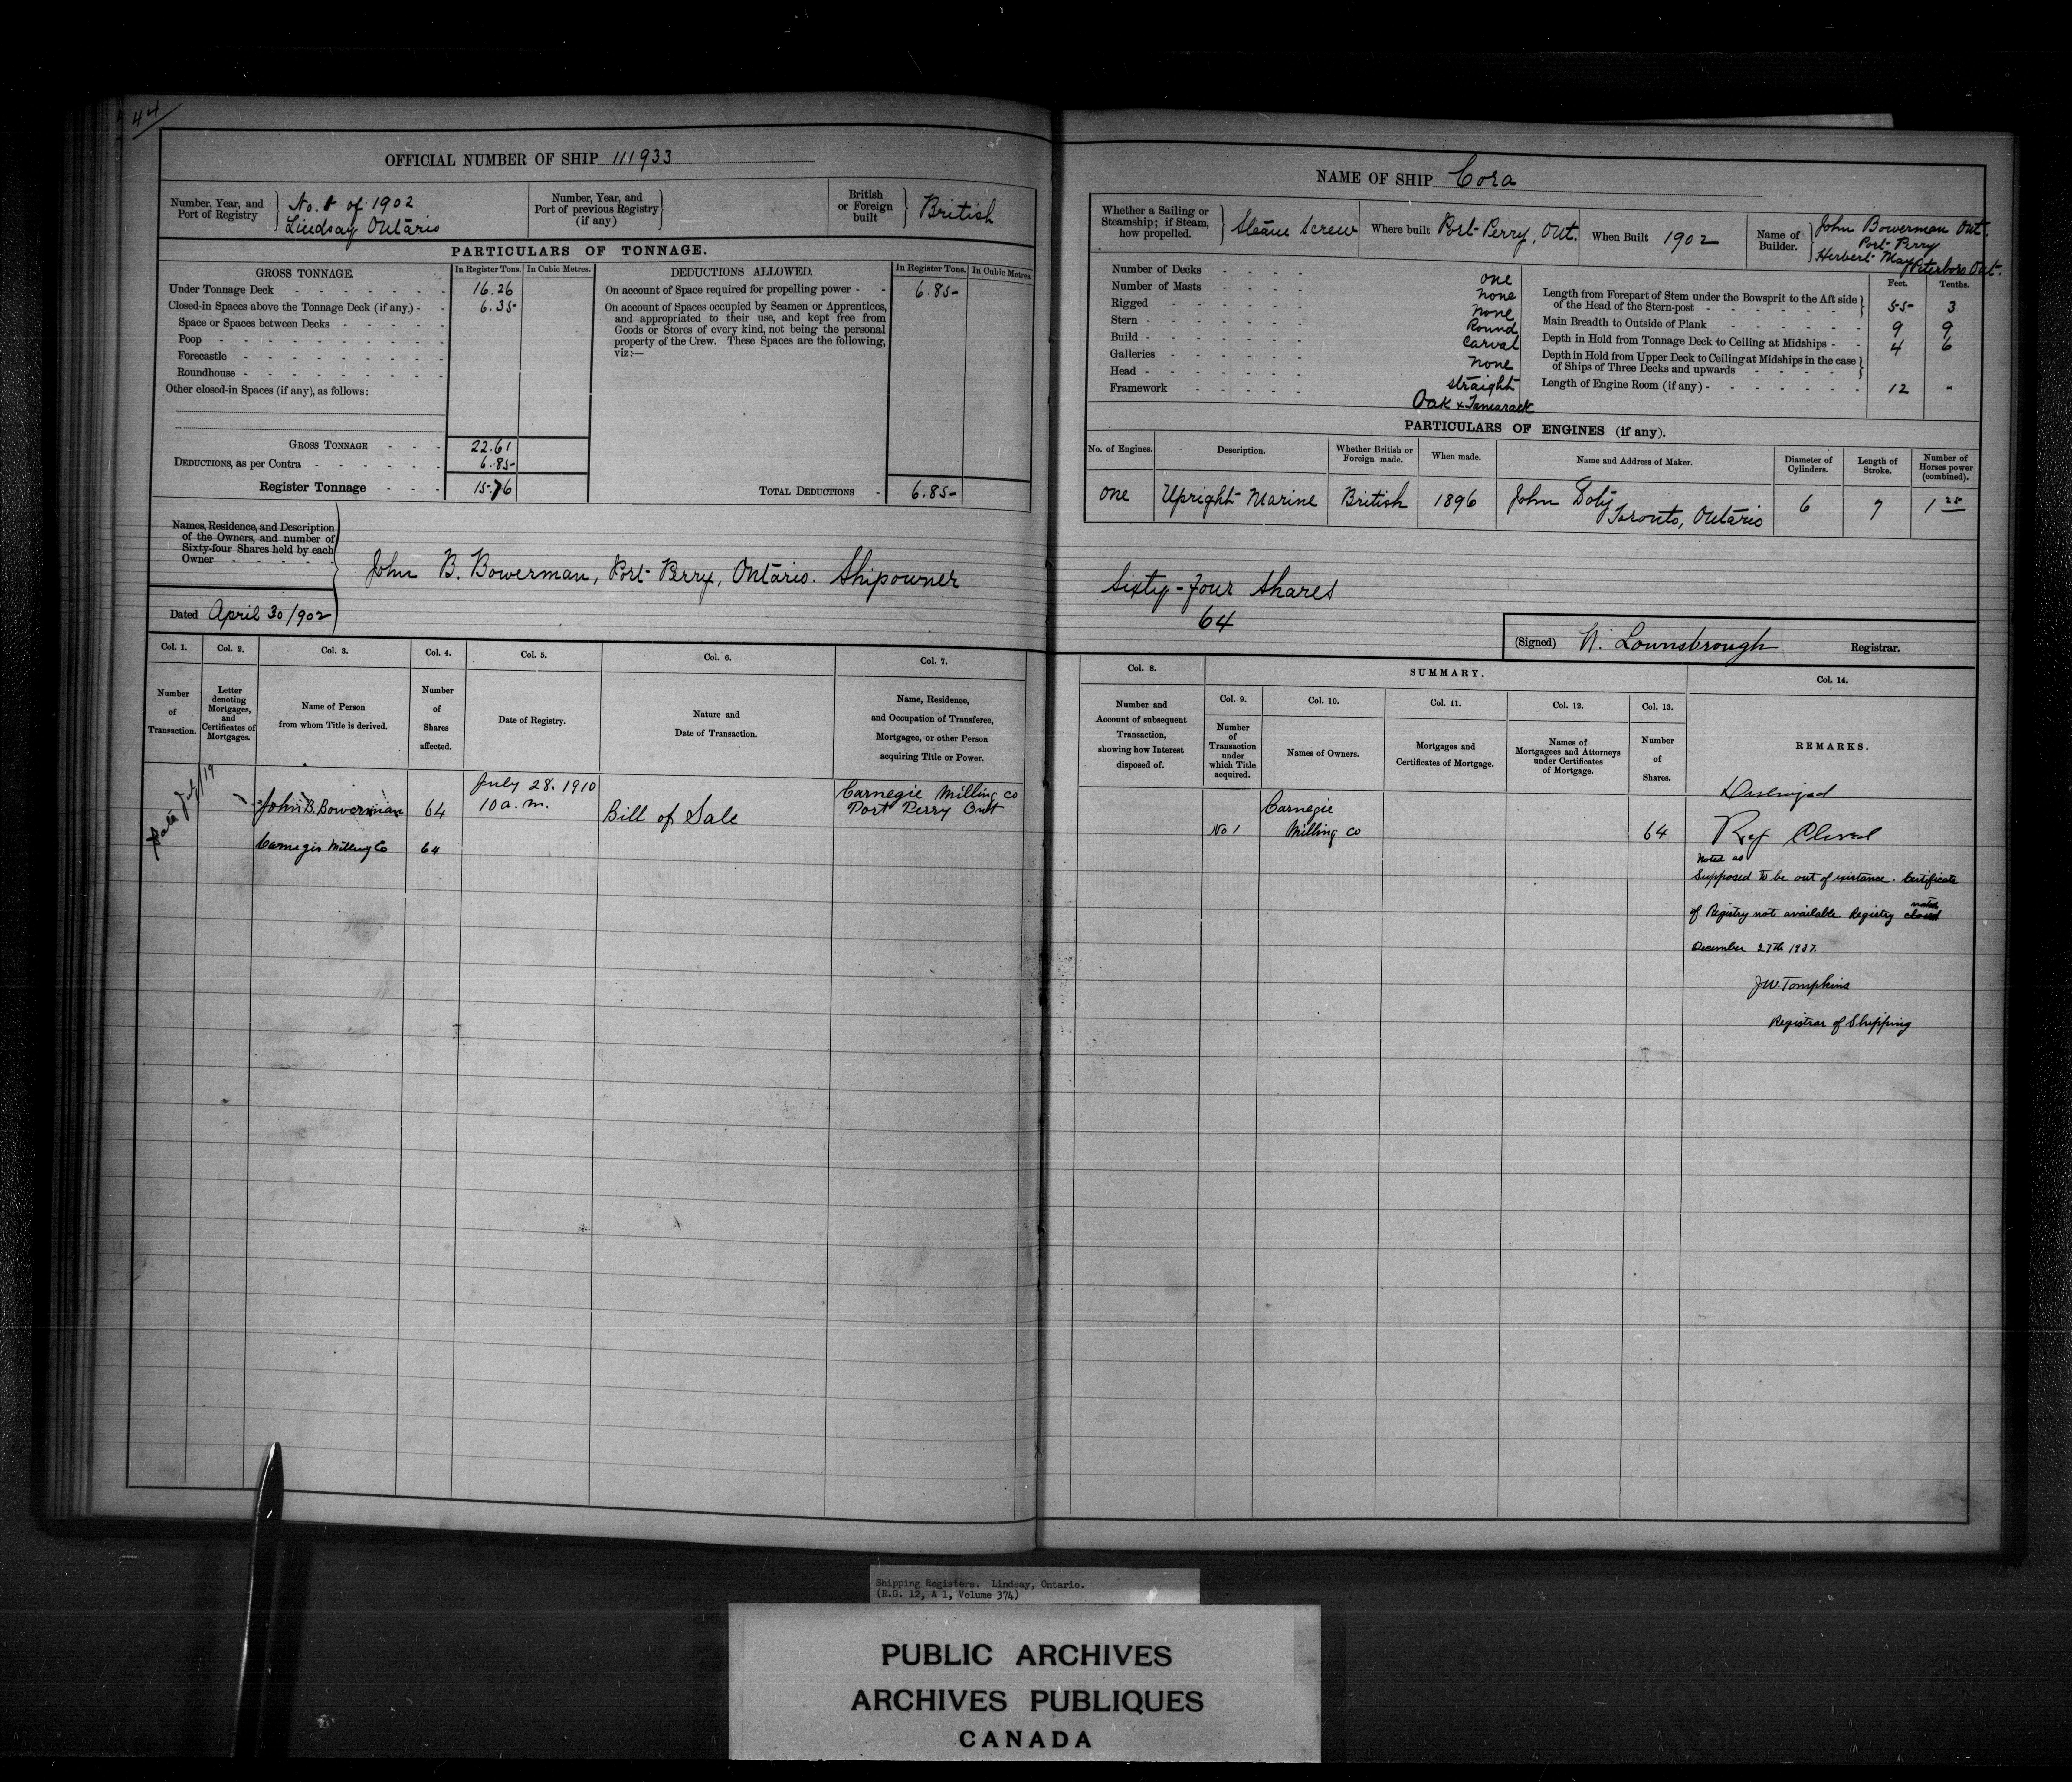 44
OFFICIAL NUMBER OF SHIP 111933
Number, Year, and Port of Registry
No. 8 of 1902
Lindsay Ontario
Number, Year, and Port of previous Registry (if any)
British or Foreign built
British
PARTICULARS OF TONNAGE.
GROSS TONNAGE.
In Register Tons.
In Cubic Metres.
DEDUCTIONS ALLOWED.
In Register Tons.
In Cubic Metres.
Under Tonnage Deck 16.26
Closed-in Spaces above the Tonnage Deck (if any) 6.35
Space or Spaces between Decks
Poop
Forecastle
Roundhouse
Other closed-in Spaces (if any), as follows:
GROSS TONNAGE 22.61
DEDUCTIONS, as per Contra 6.85
Register Tonnage 15.76
On account of Space required for propelling power 6.85
On account of Spaces occupied by Seamen or Apprentices,
and appropriated to their use, and kept free from
Goods or Stores of every kind, not being the personal
property of the Crew. These Spaces are the following,
viz:—
TOTAL DEDUCTIONS 6.85
Names, Residence, and Description
of the Owners, and number of
Sixty-four Shares held by each
Owner
John B. Bowerman, Port Perry, Ontario. Shipowner
Dated April 30/902
NAME OF SHIP Cora
Whether a Sailing or
Steamship; if Steam,
how propelled.
Steam Screw
Where built Port Perry, Ont.
When Built 1902
Name of Builder.
John Bowerman Ont.
Port Perry
Herbert May Peterboro Ont.
Number of Decks one
Number of Masts none
Rigged none
Stern Round
Build Carval
Galleries none
Head straight
Framework Oak & Tamarack
Feet. Tenths.
Length from Forepart of Stem under the Bowsprit to the Aft side
of the Head of the Stern-post 55 3
Main Breadth to Outside of Plank 9 9
Depth in Hold from Tonnage Deck to Ceiling at Midships 4 6
Depth in Hold from Upper Deck to Ceiling at Midships in the case
of Ships of Three Decks and upwards
Length of Engine Room (if any) 12 -
PARTICULARS OF ENGINES (if any).
No. of Engines.
Description.
Whether British or Foreign made.
When made.
Name and Address of Maker.
Diameter of Cylinders.
Length of Stroke.
Number of Horses power (combined).
one
Upright Marine
British
1896
John Doty
Toronto, Ontario
6
7
Sixty-four Shares
64
(Signed) N. Lounsbrough Registrar.
Col. 1.
Col. 2.
Col. 3.
Col. 4.
Col. 5.
Col. 6.
Col. 7.
Number of Transaction.
Letter denoting Mortgages, and Certificates of Mortgages.
Name of Person from whom Title is derived.
Number of Shares affected.
Date of Registry.
Nature and Date of Transaction.
Name, Residence, and Occupation of Transferee, Mortgagee, or other Person acquiring Title or Power.
Col. 8.
SUMMARY.
Col. 14.
Number and Account of subsequent Transaction, showing how Interest disposed of.
Col. 9.
Col. 10.
Col. 11.
Col. 12.
Col. 13.
Number of Transaction under which Title acquired.
Names of Owners.
Mortgages and Certificates of Mortgage.
Names of Mortgagees and Attorneys under Certificates of Mortgage.
Number of Shares.
REMARKS.
John B. Bowerman
64
July 28. 1910
10 a.m.
Bill of Sale
Carnegie Milling Co
Port Perry Ont
Carnegie Milling Co
64
No 1
Carnegie
Milling Co
64
Destroyed
Reg Closed
Noted as
Supposed to be out of existance. Certificate
of Registry not available. Registry closed noted
December 27th 1937.
J.W. Tompkins
Registrar of Shipping
Shipping Registers. Lindsay, Ontario.
(R.G. 12, A 1, Volume 374)
PUBLIC ARCHIVES
ARCHIVES PUBLIQUES
CANADA